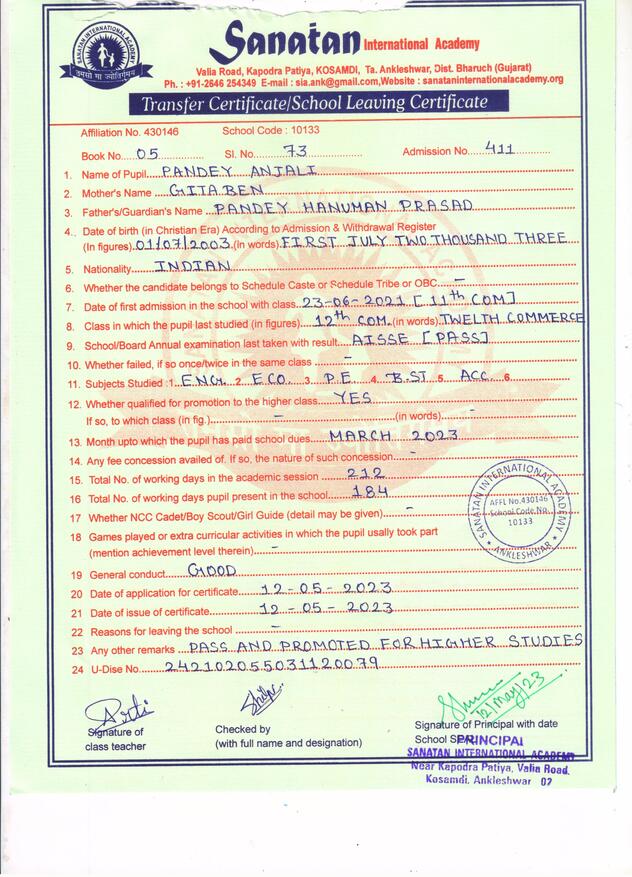 SANATAN INTERNATIONAL ACADEMY
तमसो मा ज्योतिर्गमय
Sanatan International Academy
Valia Road, Kapodra Patiya, KOSAMDI, Ta. Ankleshwar, Dist. Bharuch (Gujarat)
Ph. : +91-2646 254349 E-mail : sia.ank@gmail.com,Website : sanataninternationalacademy.org
Transfer Certificate/School Leaving Certificate
Affiliation No. 430146 School Code : 10133
Book No.... 05 Sl. No. 73 Admission No. 411
1. Name of Pupil PANDEY ANJALI
2. Mother's Name GITABEN
3. Father's/Guardian's Name PANDEY HANUMAN PRASAD
4. Date of birth (in Christian Era) According to Admission & Withdrawal Register
(In figures) 01/07/2003 (in words) FIRST JULY TWO THOUSAND THREE
5. Nationality INDIAN
6. Whether the candidate belongs to Schedule Caste or Schedule Tribe or OBC –
7. Date of first admission in the school with class 23-06-2021 [11th COM]
8. Class in which the pupil last studied (in figures) 12th COM. (in words) TWELTH COMMERCE
9. School/Board Annual examination last taken with result AISSE [PASS]
10. Whether failed, if so once/twice in the same class –
11. Subjects Studied :1. ENG. 2. ECO. 3. P.E. 4. B.ST 5. ACC. 6.
12. Whether qualified for promotion to the higher class YES
If so, to which class (in fig.) – (in words) –
13. Month upto which the pupil has paid school dues MARCH 2023
14. Any fee concession availed of. If so, the nature of such concession –
15. Total No. of working days in the academic session 212
16 Total No. of working days pupil present in the school 184
17 Whether NCC Cadet/Boy Scout/Girl Guide (detail may be given) –
18 Games played or extra curricular activities in which the pupil usally took part
(mention achievement level therein) –
19 General conduct GOOD
20 Date of application for certificate 12-05-2023
21 Date of issue of certificate 12-05-2023
22 Reasons for leaving the school –
23 Any other remarks PASS AND PROMOTED FOR HIGHER STUDIES
24 U-Dise No. 242102055031120079
SANATAN INTERNATIONAL ACADEMY
AFFL No.430146
School Code No.
10133
ANKLESHWAR
12/May/23
Signature of
class teacher
Checked by
(with full name and designation)
Signature of Principal with date
School
PRINCIPAL
SANATAN INTERNATIONAL ACADEMY
Near Kapodra Patiya, Valia Road,
Kosamdi, Ankleshwar 02